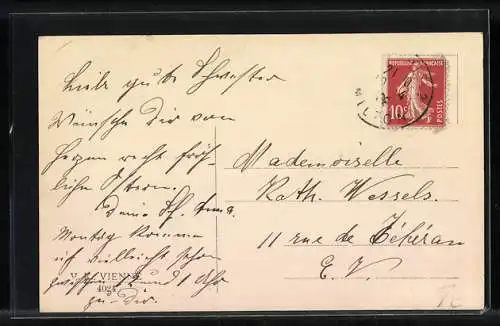 Liebe gute Schwester
Wünsche Dir von
Herzen recht fröh-
liche Ostern.
Deine Schw. Anna.
Montag komme
ich vielleicht schon
zwischen und 1 Uhr
zu Dir.
V. K. VIENNE
4024
REPUBLIQUE FRANÇAISE
10 c
POSTES
Mademoiselle
Kath. Wessels.
11 rue de Téhéran
E. V.